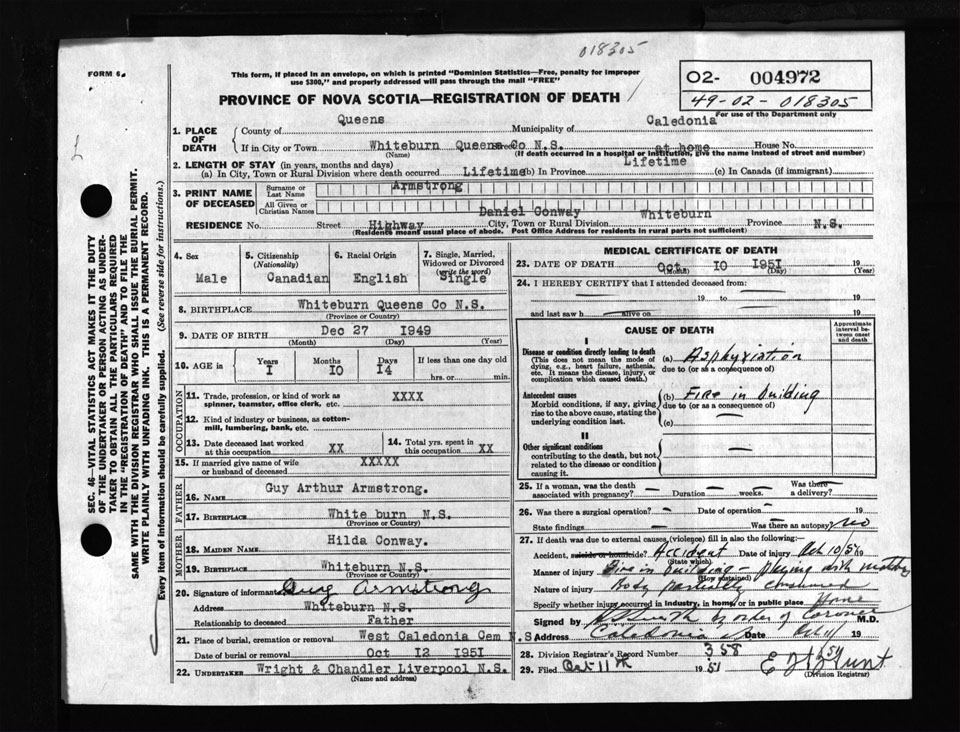 018305
FORM 6.
This form, if placed in an envelope, on which is printed "Dominion Statistics—Free, penalty for improper
use $300," and properly addressed will pass through the mail "FREE"
PROVINCE OF NOVA SCOTIA—REGISTRATION OF DEATH
O2- 004972
49-02-018305
For use of the Department only
1. PLACE OF DEATH
County of Queens Municipality of Caledonia
If in City or Town Whiteburn Queens Co N.S. Street at home House No.
(Name) (If death occurred in a hospital or institution, give the name instead of street and number)
2. LENGTH OF STAY (in years, months and days)
(a) In City, Town or Rural Division where death occurred Lifetime (b) In Province Lifetime (c) In Canada (if immigrant)
3. PRINT NAME OF DECEASED
Surname or Last Name Armstrong
All Given or Christian Names Daniel Conway
RESIDENCE No. Street Highway City, Town or Rural Division Whiteburn Province N.S.
(Residence means usual place of abode. Post Office Address for residents in rural parts not sufficient)
4. Sex Male
5. Citizenship (Nationality) Canadian
6. Racial Origin English
7. Single, Married, Widowed or Divorced (write the word) Single
8. BIRTHPLACE Whiteburn Queens Co N.S.
(Province or Country)
9. DATE OF BIRTH Dec 27 1949
(Month) (Day) (Year)
10. AGE in Years 1 Months 10 Days 14 If less than one day old hrs. or min.
OCCUPATION
11. Trade, profession, or kind of work as spinner, teamster, office clerk, etc. XXXX
12. Kind of industry or business, as cotton-mill, lumbering, bank, etc.
13. Date deceased last worked at this occupation XX
14. Total yrs. spent in this occupation XX
15. If married give name of wife or husband of deceased XXXXX
FATHER
16. Name Guy Arthur Armstrong.
17. Birthplace White burn N.S.
(Province or Country)
MOTHER
18. Maiden Name Hilda Conway.
19. Birthplace Whiteburn N.S.
(Province or Country)
20. Signature of informant Guy Armstrong
Address Whiteburn N.S.
Relationship to deceased Father
21. Place of burial, cremation or removal West Caledonia Cem N.S
Date of burial or removal Oct 12 1951
22. UNDERTAKER Wright & Chandler Liverpool N.S.
(Name and address)
MEDICAL CERTIFICATE OF DEATH
23. DATE OF DEATH Oct 10 1951 19
(Month) (Day) (Year)
24. I HEREBY CERTIFY that I attended deceased from
19 to 19
and last saw h alive on 19
CAUSE OF DEATH
Approximate interval between onset and death
I
Disease or condition directly leading to death
(This does not mean the mode of dying, e.g., heart failure, asthenia, etc. It means the disease, injury, or complication which caused death.)
(a) Asphyxiation
due to (or as a consequence of)
Antecedent causes
Morbid conditions, if any, giving rise to the above cause, stating the underlying condition last.
(b) Fire in building
due to (or as a consequence of)
(c) —
II
Other significant conditions contributing to the death, but not related to the disease or condition causing it.
25. If a woman, was the death associated with pregnancy? — Duration — weeks. Was there a delivery? —
26. Was there a surgical operation? — Date of operation — 19
State findings — Was there an autopsy? no
27. If death was due to external causes (violence) fill in also the following:—
Accident, suicide or homicide? Accident Date of injury Oct 10/51 19
(State which)
Manner of injury Fire in building — playing with matches
(How sustained)
Nature of injury Body partially consumed
Specify whether injury occurred in industry, in home, or in public place Home
Signed by by order of Coroner M.D.
Address Caledonia Date Oct 11/ 19
28. Division Registrar's Record Number 358
29. Filed Oct 11th 1951
(Division Registrar)
SEC. 46—VITAL STATISTICS ACT MAKES IT THE DUTY
OF THE UNDERTAKER OR PERSON ACTING AS UNDER-
TAKER TO OBTAIN ALL THE PARTICULARS REQUIRED
IN THE "REGISTRATION OF DEATH" AND TO FILE THE
SAME WITH THE DIVISION REGISTRAR WHO SHALL ISSUE THE BURIAL PERMIT.
WRITE PLAINLY WITH UNFADING INK. THIS IS A PERMANENT RECORD.
Every item of information should be carefully supplied. (See reverse side for instructions.)